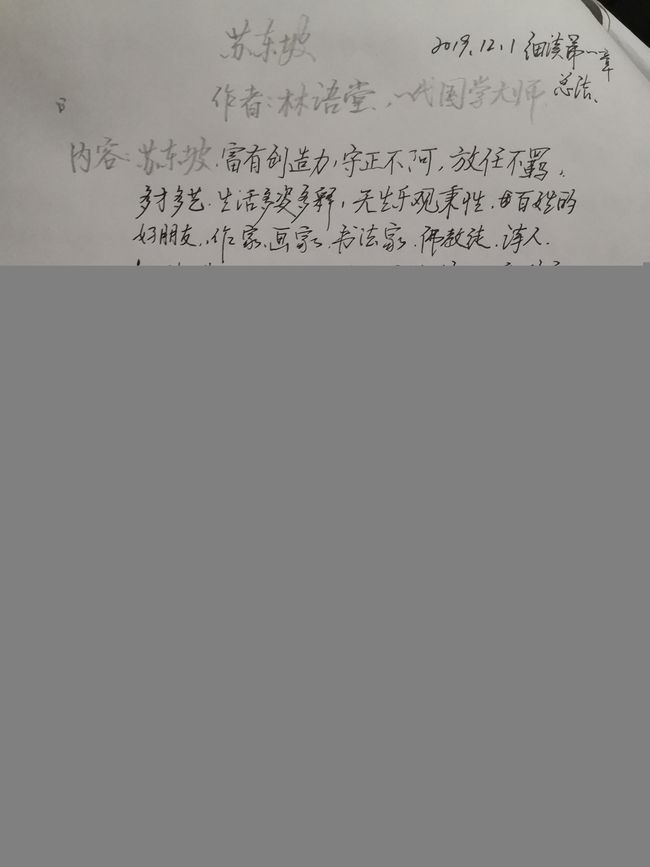 苏东坡
2019.12.1 细读第一章
总结、
作者:林语堂、一代国学大师
内容:苏东坡.富有创造力,守正不阿,放任不羁,
多才多艺.生活多姿多释,天生乐观秉性.百姓的
好朋友,作家.画家.书法家.佛教徒.诗人.